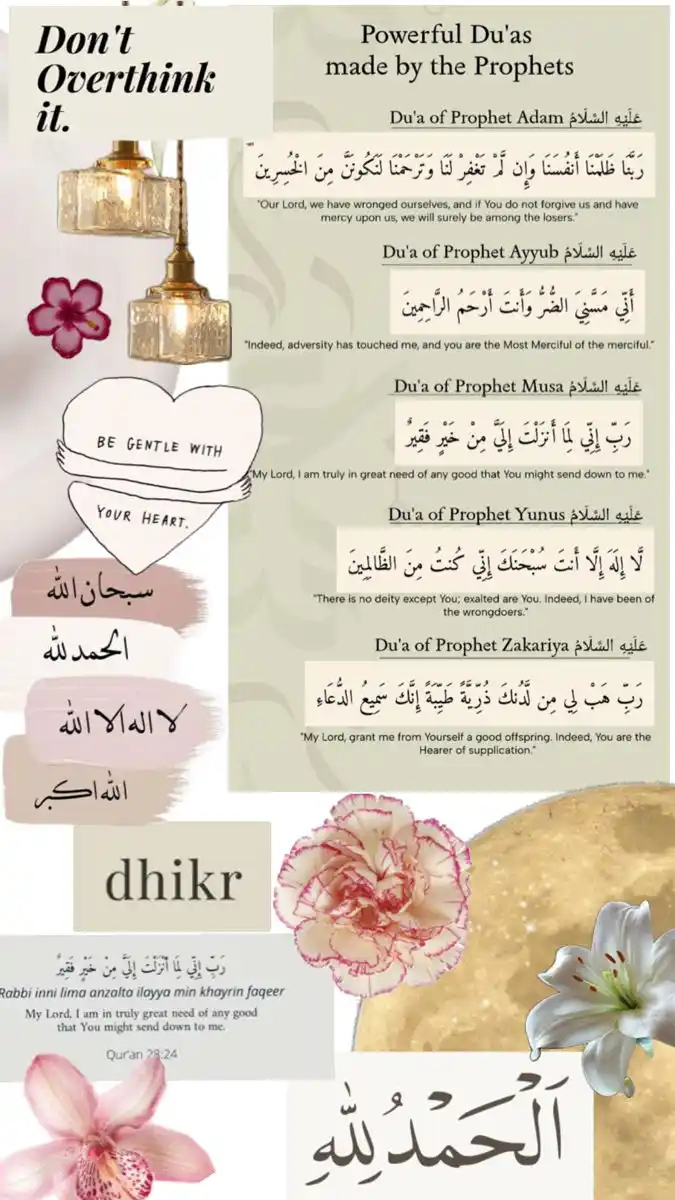 Don't
Overthink
it.
Powerful Du'as
made by the Prophets
Du'a of Prophet Adam عَلَيْهِ السَّلَامُ
رَبَّنَا ظَلَمْنَا أَنفُسَنَا وَإِن لَّمْ تَغْفِرْ لَنَا وَتَرْحَمْنَا لَنَكُونَنَّ مِنَ الْخَٰسِرِينَ
"Our Lord, we have wronged ourselves, and if You do not forgive us and have
mercy upon us, we will surely be among the losers."
Du'a of Prophet Ayyub عَلَيْهِ السَّلَامُ
أَنِّي مَسَّنِيَ الضُّرُّ وَأَنتَ أَرْحَمُ الرَّاحِمِينَ
"Indeed, adversity has touched me, and you are the Most Merciful of the merciful."
Du'a of Prophet Musa عَلَيْهِ السَّلَامُ
رَبِّ إِنِّي لِمَا أَنزَلْتَ إِلَيَّ مِنْ خَيْرٍ فَقِيرٌ
"My Lord, I am truly in great need of any good that You might send down to me."
Du'a of Prophet Yunus عَلَيْهِ السَّلَامُ
لَّا إِلَٰهَ إِلَّا أَنتَ سُبْحَٰنَكَ إِنِّي كُنتُ مِنَ الظَّالِمِينَ
"There is no deity except You; exalted are You. Indeed, I have been of
the wrongdoers."
Du'a of Prophet Zakariya عَلَيْهِ السَّلَامُ
رَبِّ هَبْ لِي مِن لَّدُنكَ ذُرِّيَّةً طَيِّبَةً إِنَّكَ سَمِيعُ الدُّعَاءِ
"My Lord, grant me from Yourself a good offspring. Indeed, You are the
Hearer of supplication."
BE GENTLE WITH
YOUR HEART.
سبحان الله
الحمد لله
لا اله الا الله
الله اكبر
dhikr
رَبِّ إِنِّي لِمَا أَنْزَلْتَ إِلَيَّ مِنْ خَيْرٍ فَقِيرٌ
Rabbi inni lima anzalta ilayya min khayrin faqeer
My Lord, I am in truly great need of any good
that You might send down to me.
Qur'an 28:24
اَلْحَمْدُ لِلّٰهِ